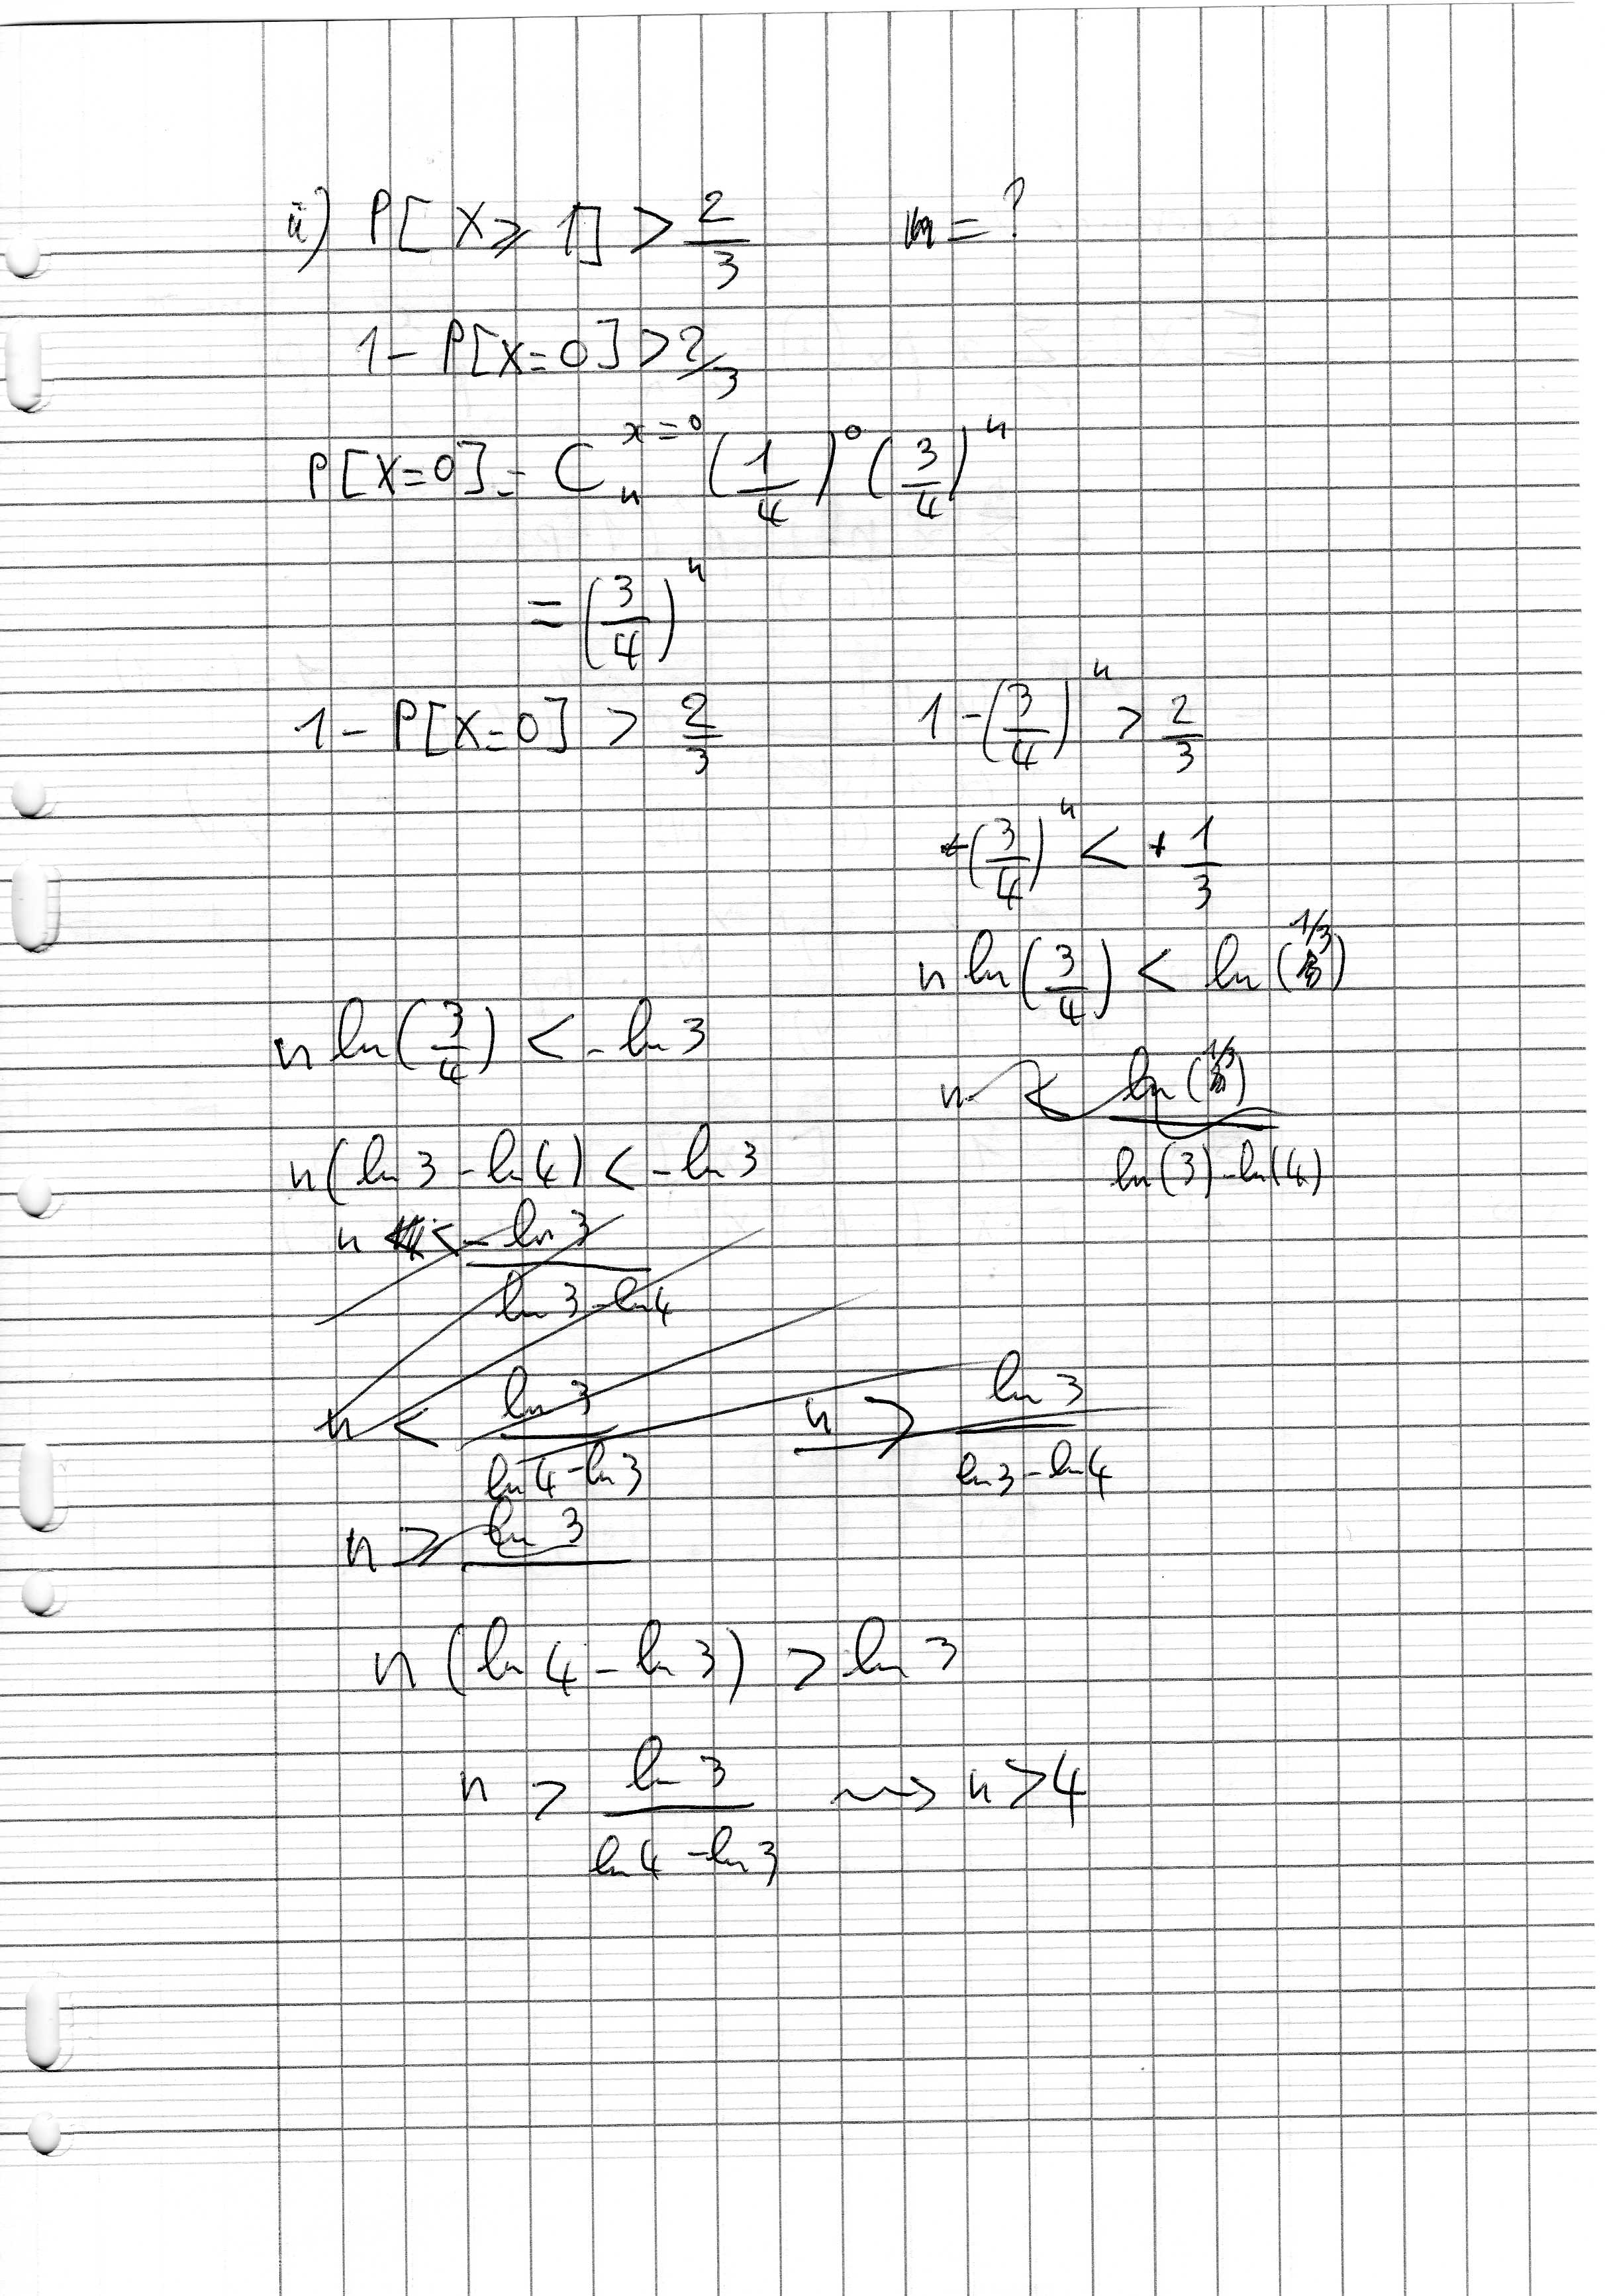 ii) P[X ⩾ 1] > 2/3    n = ?
1 - P[X=0] > 2/3
P[X=0] = C_n^{x=0} (1/4)^0 (3/4)^n
= (3/4)^n
1 - P[X=0] > 2/3    1 - (3/4)^n > 2/3
(3/4)^n < + 1/3
n ln(3/4) < ln(1/3)
n ln(3/4) < - ln 3
n < ln(1/3) / (ln(3) - ln(4))
n(ln 3 - ln 4) < - ln 3
n < - ln 3 / (ln 3 - ln 4)
n < ln 3 / (ln 4 - ln 3)    n > ln 3 / (ln 3 - ln 4)
n ⩾ ln 3
n (ln 4 - ln 3) > ln 3
n > ln 3 / (ln 4 - ln 3) ⇝ n > 4